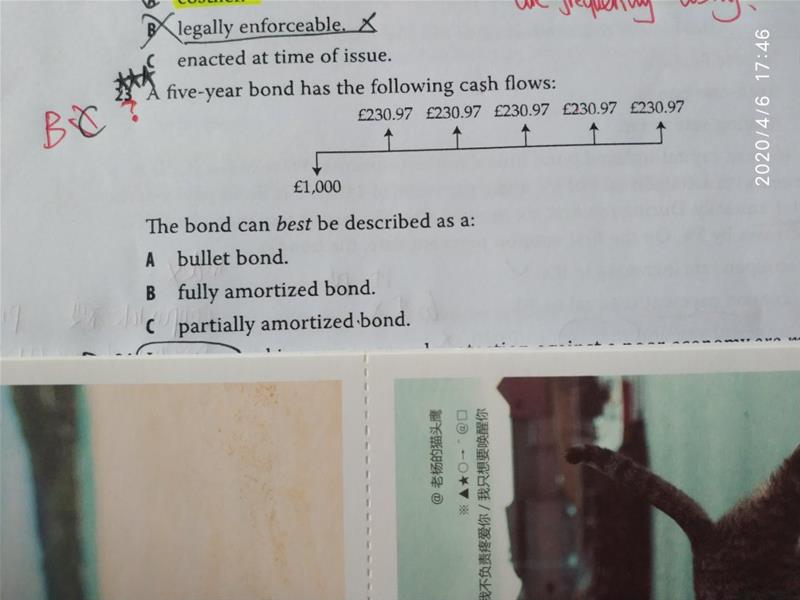 costlier.
B legally enforceable. X
C enacted at time of issue.
23 A five-year bond has the following cash flows:
£230.97 £230.97 £230.97 £230.97 £230.97
£1,000
The bond can best be described as a:
A bullet bond.
B fully amortized bond.
C partially amortized bond.
B C ?
2020/4/6 17:46
@ 老杨的猫头鹰
※▲★○→＂@□
我不负责疼爱你 / 我只想要唤醒你